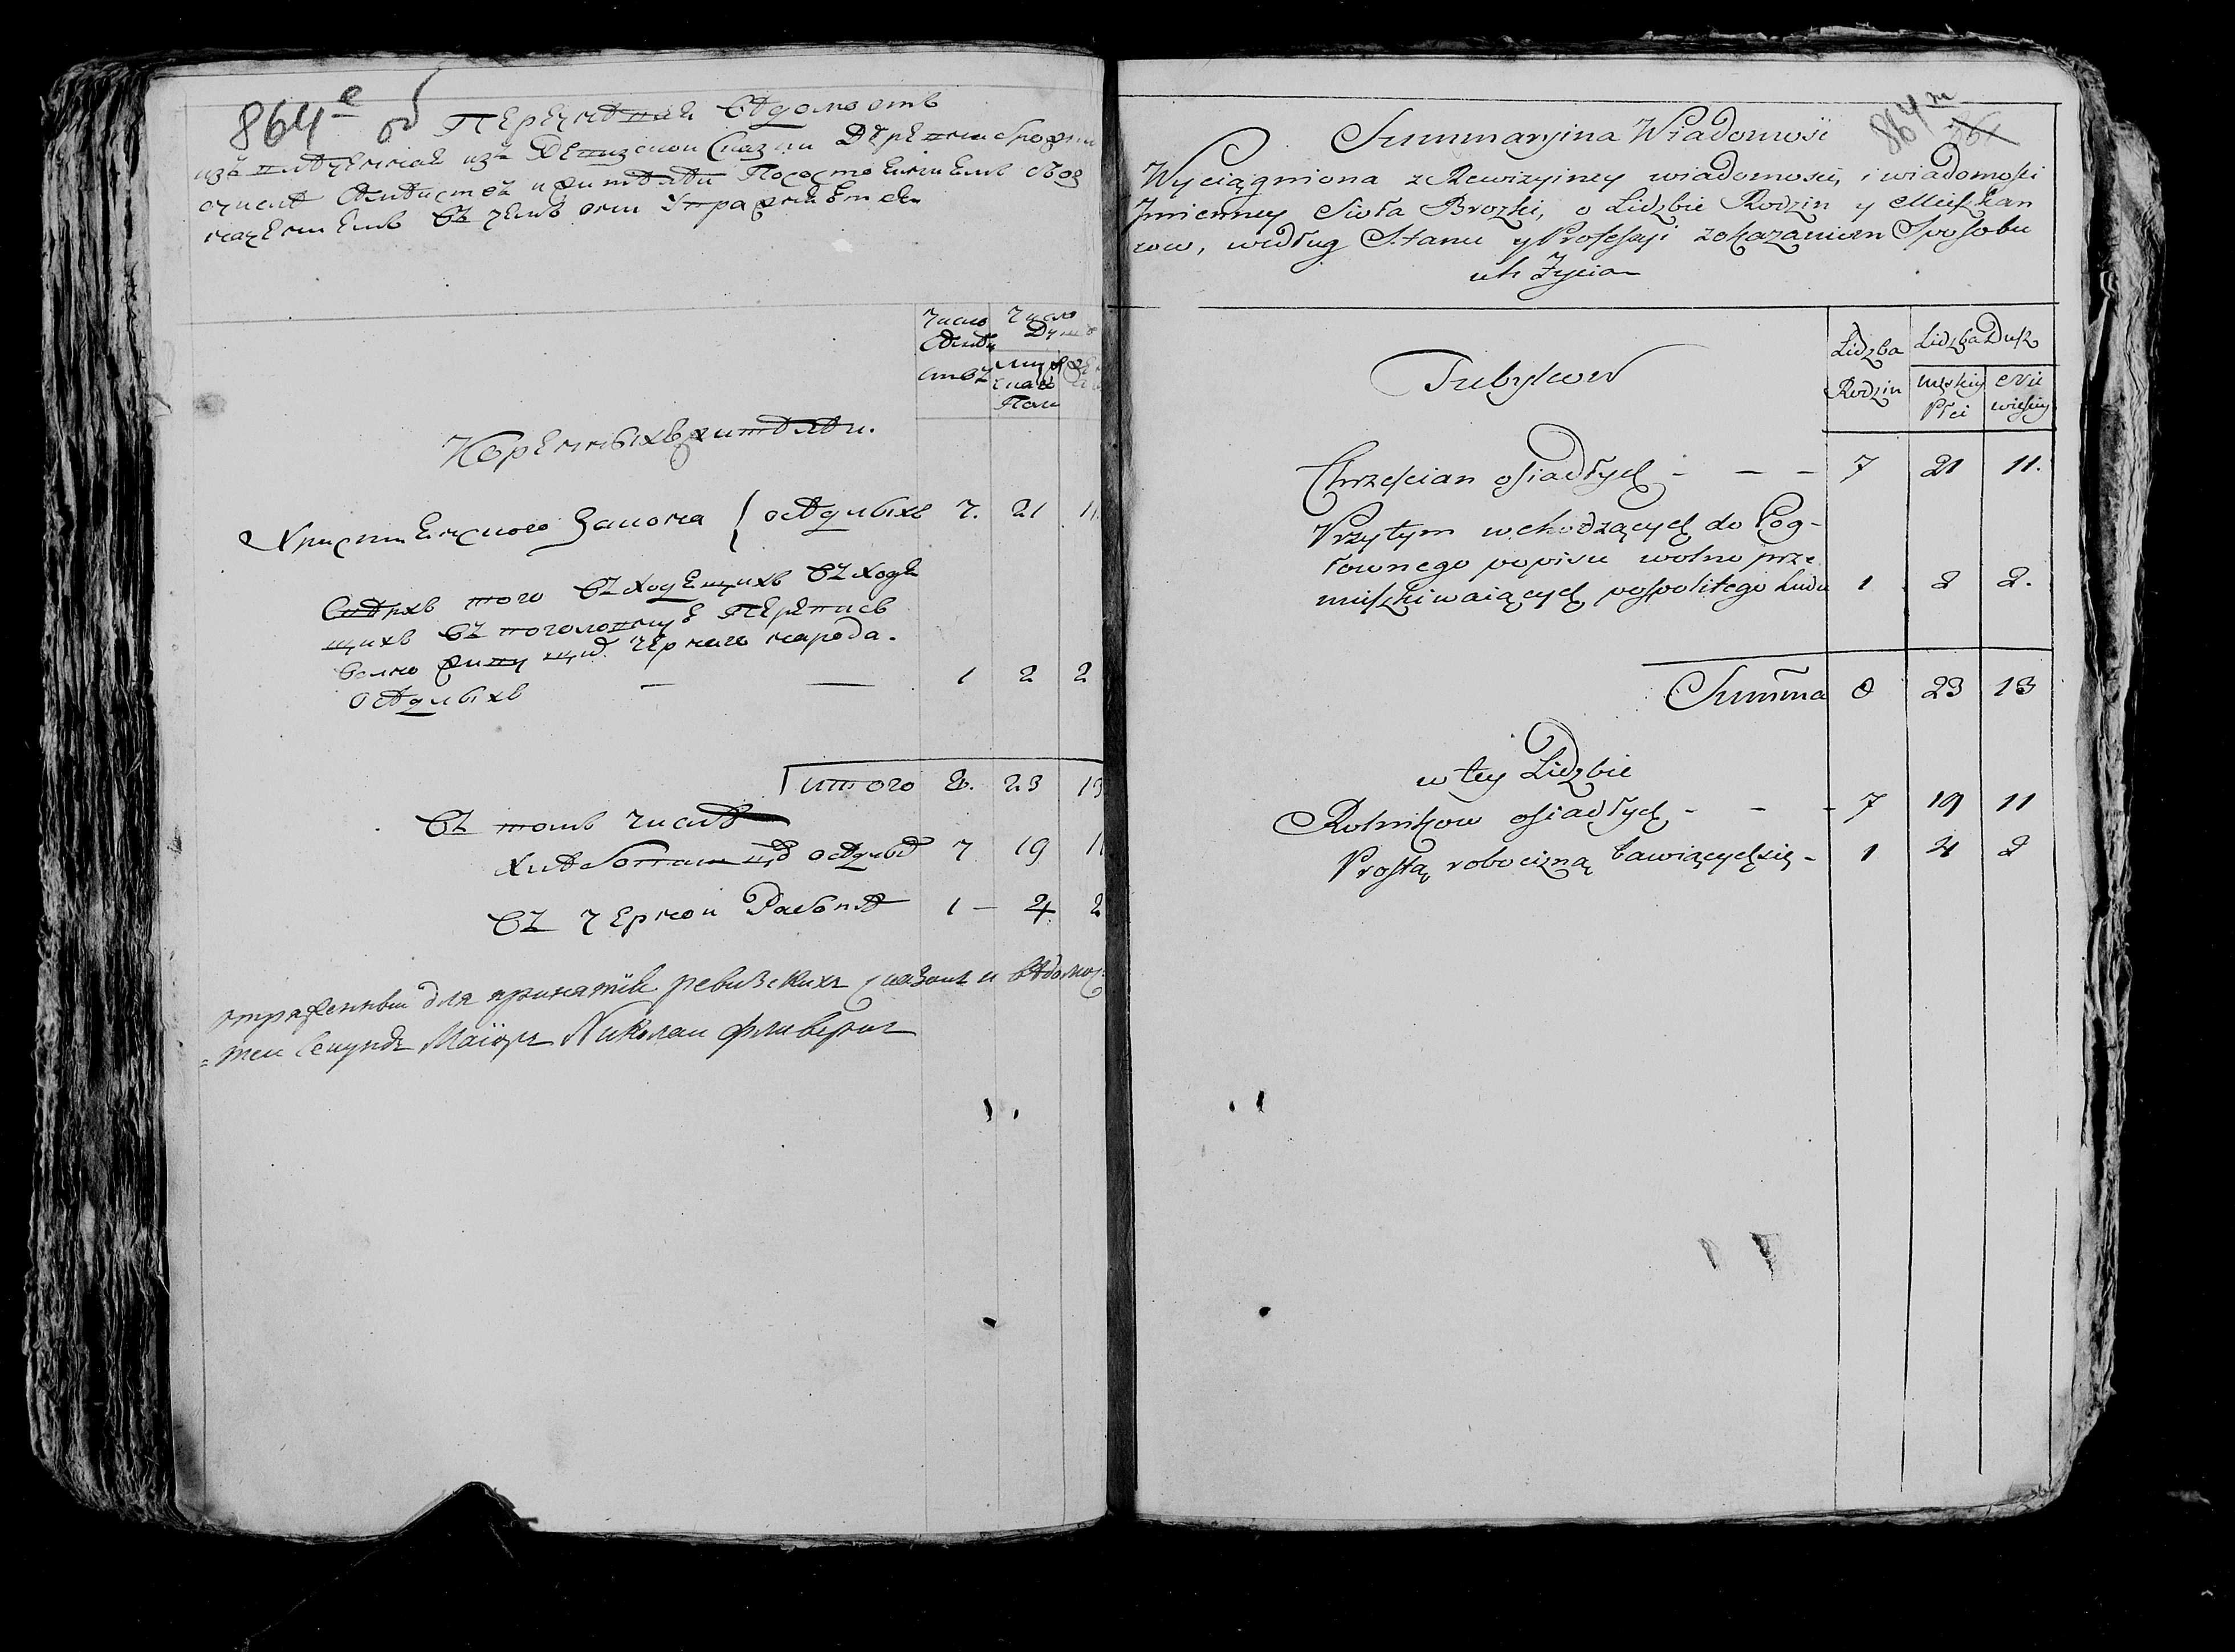 864 е об
Перечневая Ведомость
извлеченная из Ревизской Сказки Деревни Брожки
о числе и жителей По состоянием с обоз
начением в чем они Упражняются
Число Число Душ
мужеска Пола
Коренных жителей.
Христианского Закона { оседлых 7. 21 11
Сверх того входящих
щих в поголовную Перепись
волно живущих черного народа.
оседлых — — 1 2 2
итого 8. 23 13
в том числе
Хлебопашцов оседлых 7 19 11
в черной Работе 1 — 4 2
отряженный для принятия ревизских сказок и ведомос-
=тей Секунд Маіор Николай
864 m
Summaryina Wiadomość
Wyciągniona z Rewizyiney wiadomości, i wiadomości
Jmienney Sioła Brozki, o Lidzbie Rodzin y Mieszkan
cow, według Stanu y Professyi z okazaniem Sposobu
ich Życia
Tubylcow
Lidzba Rodzin
Lidzba Dusz
męskiy Płci
Nie wieskiy
Chrzescian osiadłych - - - 7 21 11.
Przytym wchodzących do Pog-
łownego popisu wolno prze
mieszkiwaiących pospolitego Ludu 1 2 2.
Summa 8 23 13
w tey Lidzbie
Rolnikow osiadłych - - - 7 19 11
Prostą robocizną bawiących się - 1 4 2